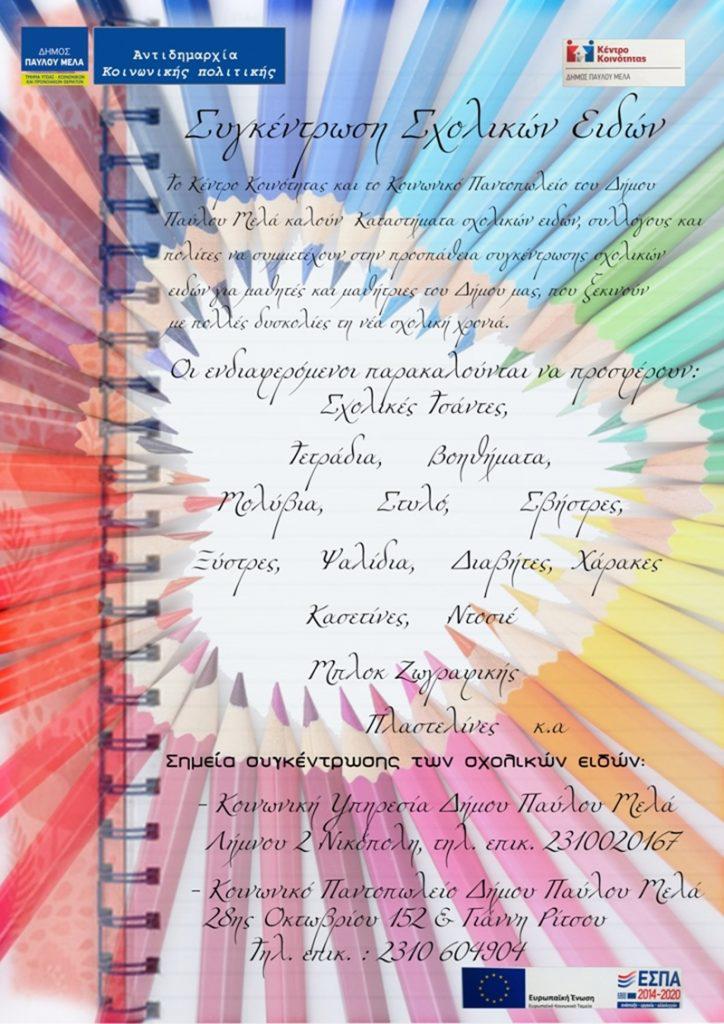 ΔΗΜΟΣ
ΠΑΥΛΟΥ ΜΕΛΑ
ΤΜΗΜΑ ΥΓΕΙΑΣ - ΚΟΙΝΩΝΙΚΩΝ
ΚΑΙ ΠΡΟΝΟΙΑΚΩΝ ΘΕΜΑΤΩΝ
Αντιδημαρχία
Κοινωνικής πολιτικής
Κέντρο
Κοινότητας
ΔΗΜΟΣ ΠΑΥΛΟΥ ΜΕΛΑ
Συγκέντρωση Σχολικών Ειδών
Το Κέντρο Κοινότητας και το Κοινωνικό Παντοπωλείο του Δήμου
Παύλου Μελά καλούν Καταστήματα σχολικών ειδών, συλλόγους και
πολίτες να συμμετέχουν στην προσπάθεια συγκέντρωσης σχολικών
ειδών για μαθητές και μαθήτριες του Δήμου μας, που ξεκινούν
με πολλές δυσκολίες τη νέα σχολική χρονιά.
Οι ενδιαφερόμενοι παρακαλούνται να προσφέρουν:
Σχολικές Τσάντες,
Τετράδια, Βοηθήματα,
Μολύβια, Στυλό, Σβήστρες,
Ξύστρες, Ψαλίδια, Διαβήτες, Χάρακες
Κασετίνες, Ντοσιέ
Μπλοκ Ζωγραφικής
Πλαστελίνες κ.α
Σημεία συγκέντρωσης των σχολικών ειδών:
- Κοινωνική Υπηρεσία Δήμου Παύλου Μελά
Λήμνου 2 Νικόπολη, τηλ. επικ. 2310020167
- Κοινωνικό Παντοπωλείο Δήμου Παύλου Μελά
28ης Οκτωβρίου 152 & Γιάννη Ρίτσου
Τηλ. επικ. : 2310 604904
Ευρωπαϊκή Ένωση
Ευρωπαϊκό Κοινωνικό Ταμείο
ΕΣΠΑ
2014-2020
ανάπτυξη - εργασία - αλληλεγγύη